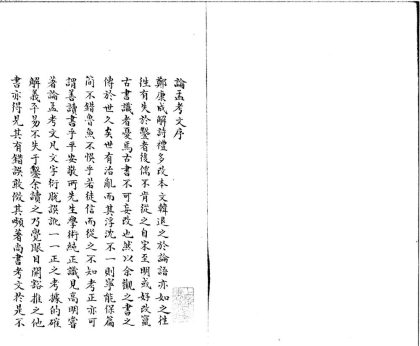 論孟考文序
鄭康成解詩禮多改本文韓退之於論語亦如之徃
徃有失於鑿者後儒不肯從之自宋至明或好改竄
古書識者憂焉古書不可妄改也然以余觀之書之
傳於世久矣世有治亂而其浮沈不一則寧能保篇
簡不錯魯魚不悞乎若徒信而從之不知考正亦可
謂善讀書乎平安敬所先生學術純正識見高明嘗
著論孟考文凡文字衍脱誤訛一一正之考據的確
解義平易不失于鑿余讀之乃覺眼目開豁推之他
書亦得見其有錯誤敢倣其顰著尚書考文於是不